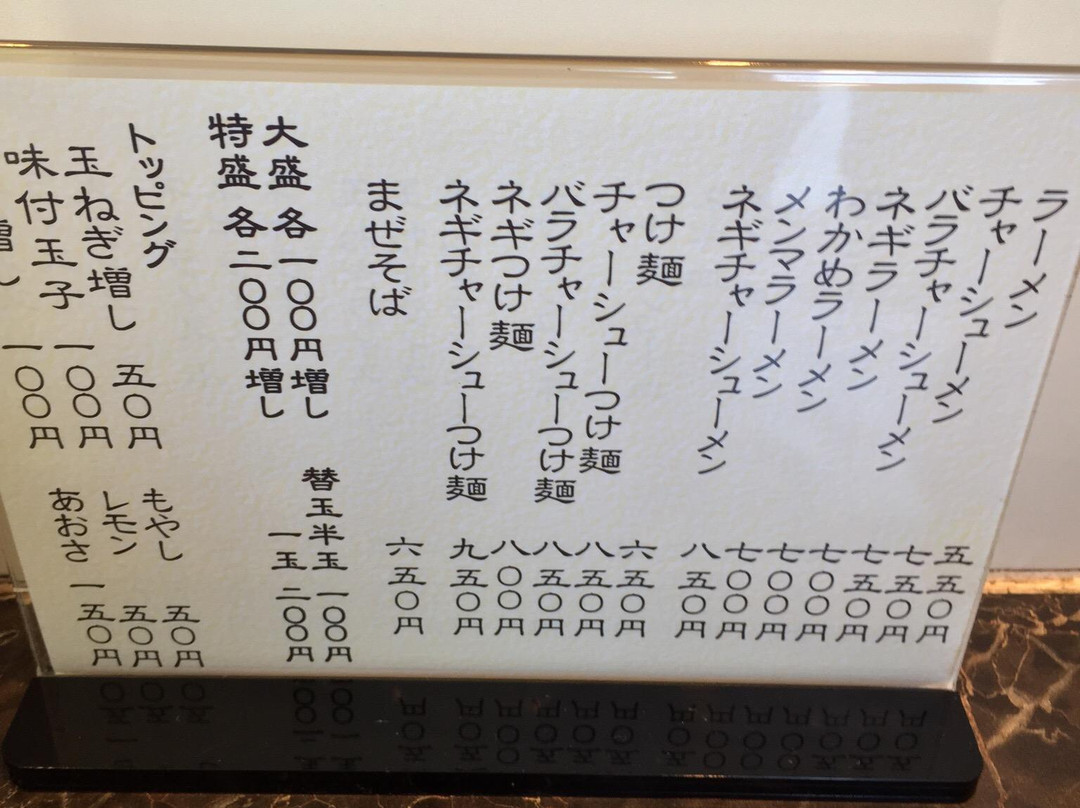 ラーメン 五五〇円
チャーシューメン 七五〇円
バラチャーシューメン 七五〇円
ネギラーメン 七〇〇円
わかめラーメン 七〇〇円
メンマラーメン 七〇〇円
ネギチャーシューメン 八五〇円
つけ麺 六五〇円
チャーシューつけ麺 八五〇円
バラチャーシューつけ麺 八五〇円
ネギつけ麺 八〇〇円
ネギチャーシューつけ麺 九五〇円
まぜそば 六五〇円
大盛 各一〇〇円増し
特盛 各二〇〇円増し
替玉半玉 一〇〇円
一玉 二〇〇円
トッピング
玉ねぎ増し 五〇円
味付玉子 一〇〇円
増し 一〇〇円
もやし 五〇円
レモン 五〇円
あおさ 一五〇円